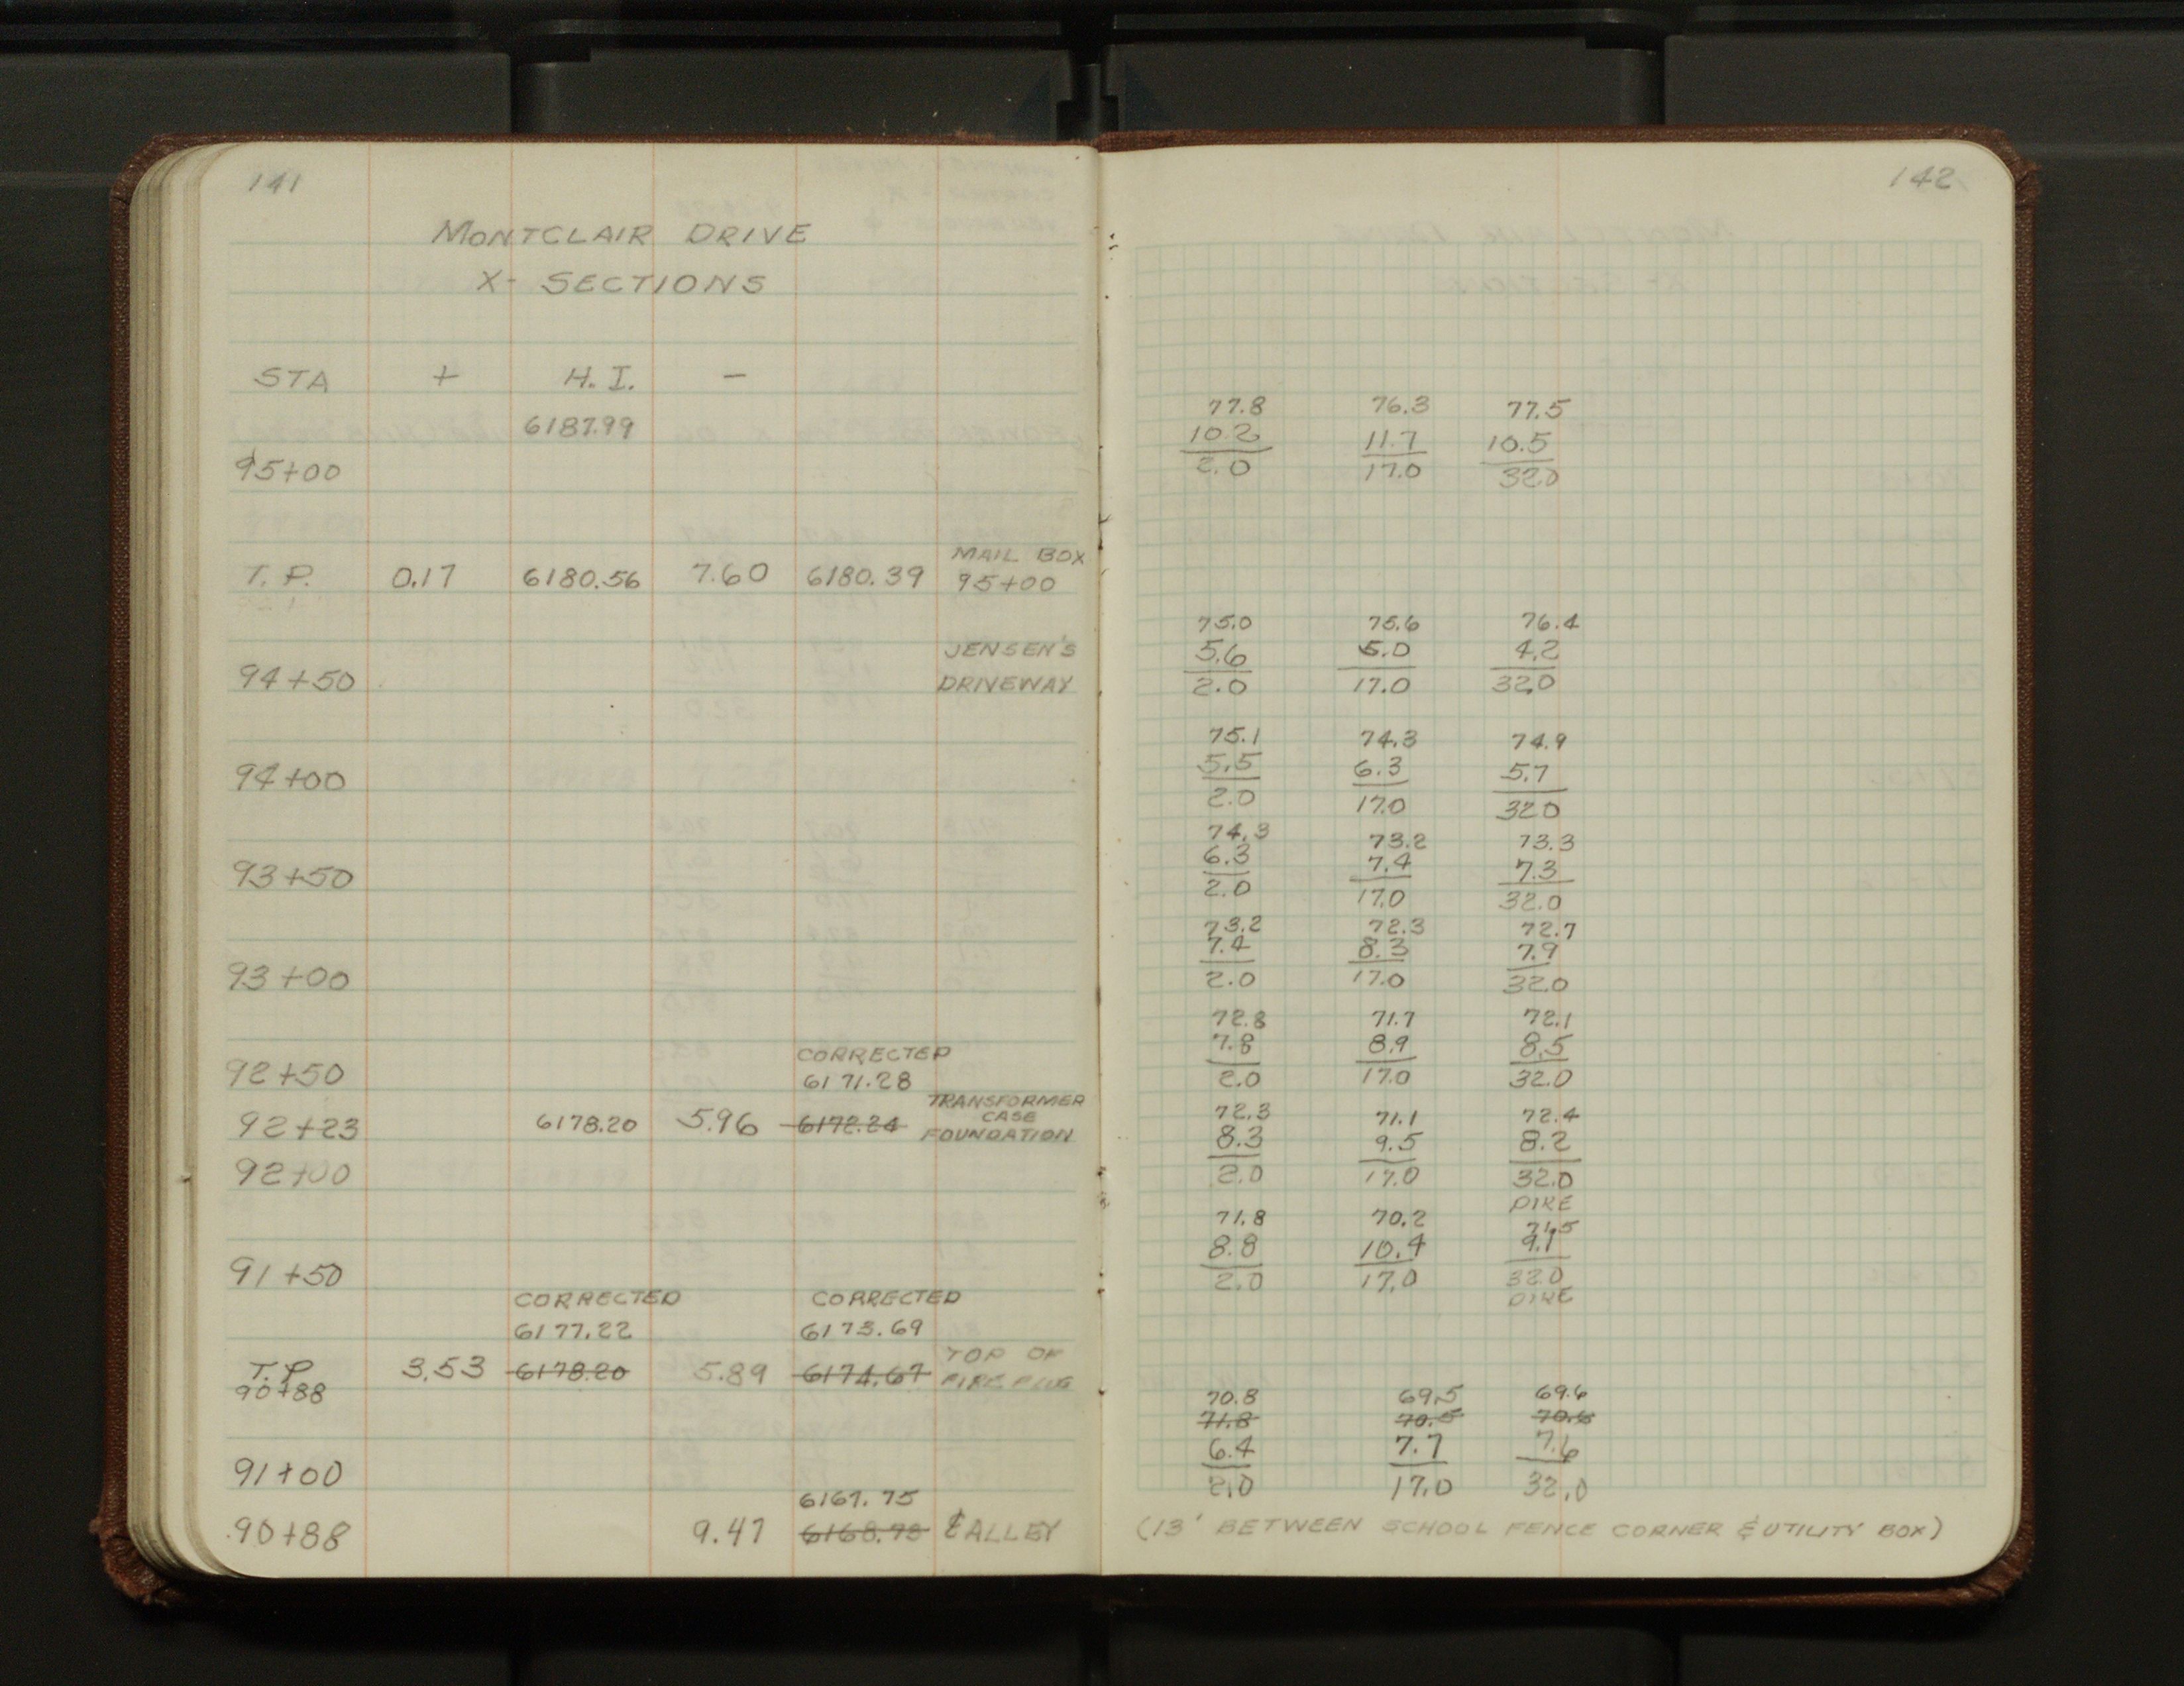 141
MONTCLAIR DRIVE
X- SECTIONS
STA + H. I. -
6187.99
95+00
MAIL BOX
T. P. 0.17 6180.56 7.60 6180.39 95+00
JENSEN'S
94+50 DRIVEWAY
94+00
93+50
93+00
CORRECTED
92+50 6171.28
TRANSFORMER
CASE
92+23 6178.20 5.96 6172.24 FOUNDATION
92+00
91+50
CORRECTED CORRECTED
6177.22 6173.69
TOP OF
T. P. 3.53 6178.20 5.89 6174.67 FIRE PLUG
90+88
91+00
6167.75
90+88 9.47 6168.73 ℄ ALLEY
142
77.8 76.3 77.5
10.2 11.7 10.5
2.0 17.0 32.0
75.0 75.6 76.4
5.6 5.0 4.2
2.0 17.0 32.0
75.1 74.3 74.9
5.5 6.3 5.7
2.0 17.0 32.0
74.3 73.2 73.3
6.3 7.4 7.3
2.0 17.0 32.0
73.2 72.3 72.7
7.4 8.3 7.9
2.0 17.0 32.0
72.8 71.7 72.1
7.8 8.9 8.5
2.0 17.0 32.0
72.3 71.1 72.4
8.3 9.5 8.2
2.0 17.0 32.0
DIKE
71.8 70.2 71.5
8.8 10.4 9.1
2.0 17.0 32.0
DIKE
70.8 69.5 69.6
71.8 70.5 70.6
6.4 7.7 7.6
2.0 17.0 32.0
(13' BETWEEN SCHOOL FENCE CORNER & UTILITY BOX)